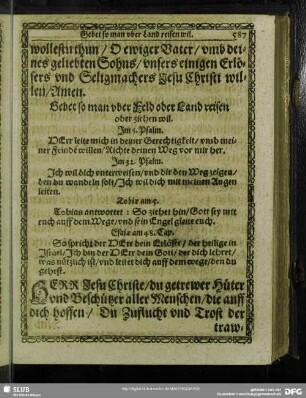 Gebet so man vber Land reisen wil. 587
wollestu thun / O ewiger Vater / vmb dei-
nes geliebten Sohns / vnsers einigen Erlö-
sers vnd Seligmachers Jesu Christi wil-
len / Amen.
Gebet so man vber Feld oder Land reisen
oder ziehen wil.
Im 5. Psalm.
HErr leite mich in deiner Gerechtigkeit / vmb mei-
ner Feinde willen / Richte deinen Weg vor mir her.
Im 32. Psalm.
Ich wil dich vnterweisen / vnd dir den Weg zeigen /
den du wandeln solt / Ich wil dich mit meinen Augen
leiten.
Tobie am 5.
Tobias antwortet : So ziehet hin / Gott sey mit
euch auff dem Wege / vnd sein Engel gleite euch.
Esaie am 48. Cap.
So spricht der HErr dein Erlöser / der heilige in
Israel / Ich bin der HErr dein Gott / der dich lehret /
was nützlich ist / vnd leitet dich auff dem wege / den du
gehest.
HERR Jesu Christe / du getrewer Hüter
vnd Beschützer aller Menschen / die auff
dich hoffen / Du Zuflucht vnd Trost der
traw-
SLUB